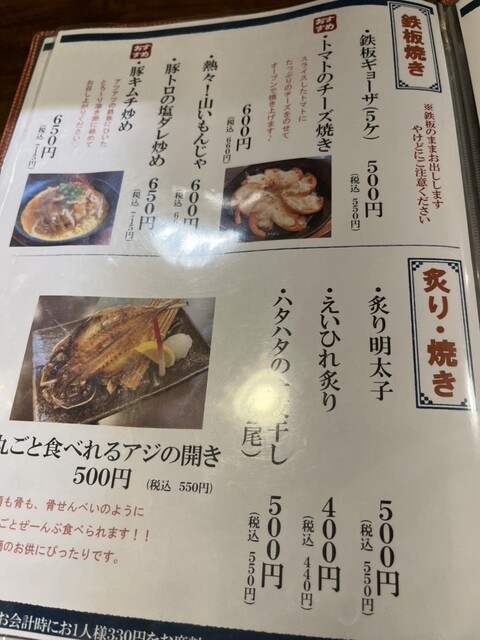 鉄板焼き
※鉄板のままお出しします
やけどにご注意ください
・鉄板ギョーザ(5ケ) 500円
(税込 550円)
おすすめ
・トマトのチーズ焼き
スライスしたトマトに
たっぷりのチーズをのせて
オーブンで焼き上げます♪
600円
(税込 660円)
・熱々!山いもんじゃ 600円
(税込 6
・豚トロの塩ダレ炒め 650円
(税込 715円)
おすすめ
・豚キムチ炒め
アツアツの鉄板にひいた
お召し上がりください♪
650円
(税込 715円)
炙り・焼き
・炙り明太子 500円
(税込 550円)
・えいひれ炙り 400円
(税込 440円)
・ハタハタの 干し
尾) 500円
(税込 550円)
丸ごと食べれるアジの開き
500円 (税込 550円)
頭も骨も、骨せんべいのように
ごとぜーんぶ食べられます!!
酒のお供にぴったりです。
お会計時にお1人様330円をお席料